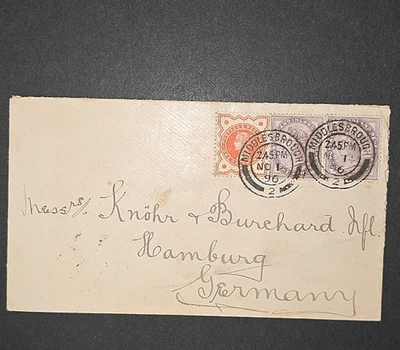 MIDDLESBROUGH
2.45 PM
NO 14
96
2
MIDDLESBROUGH
2.45 PM
2
Messrs. Knöhr & Burchard Nfl.
Hamburg
Germany